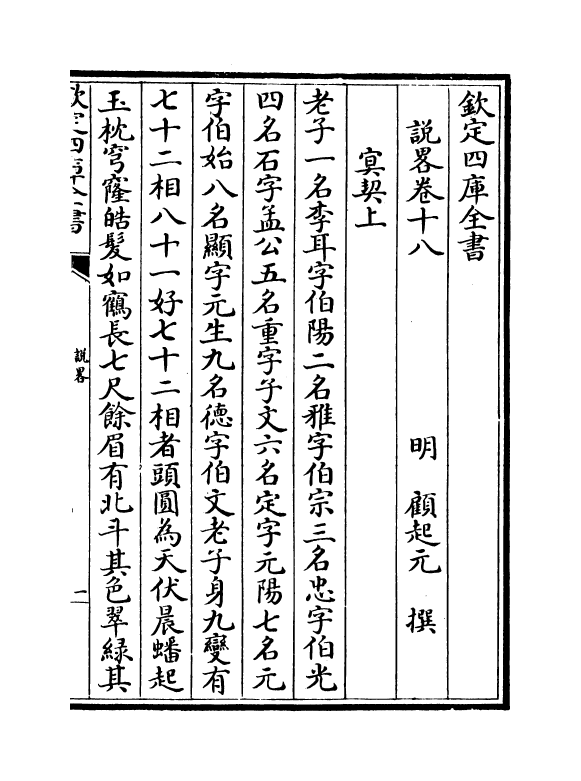 欽定四庫全書
說畧卷十八　明　顧起元　撰
㝠契上
老子一名李耳字伯陽二名雅字伯宗三名忠字伯光
四名石字孟公五名重字子文六名定字元陽七名元
字伯始八名顯字元生九名德字伯文老子身九變有
七十二相八十一好七十二相者頭圓為天伏晨蟠起
玉枕穹窿皓髮如鶴長七尺餘眉有北斗其色翠緑其
欽定四庫全書
說畧
一